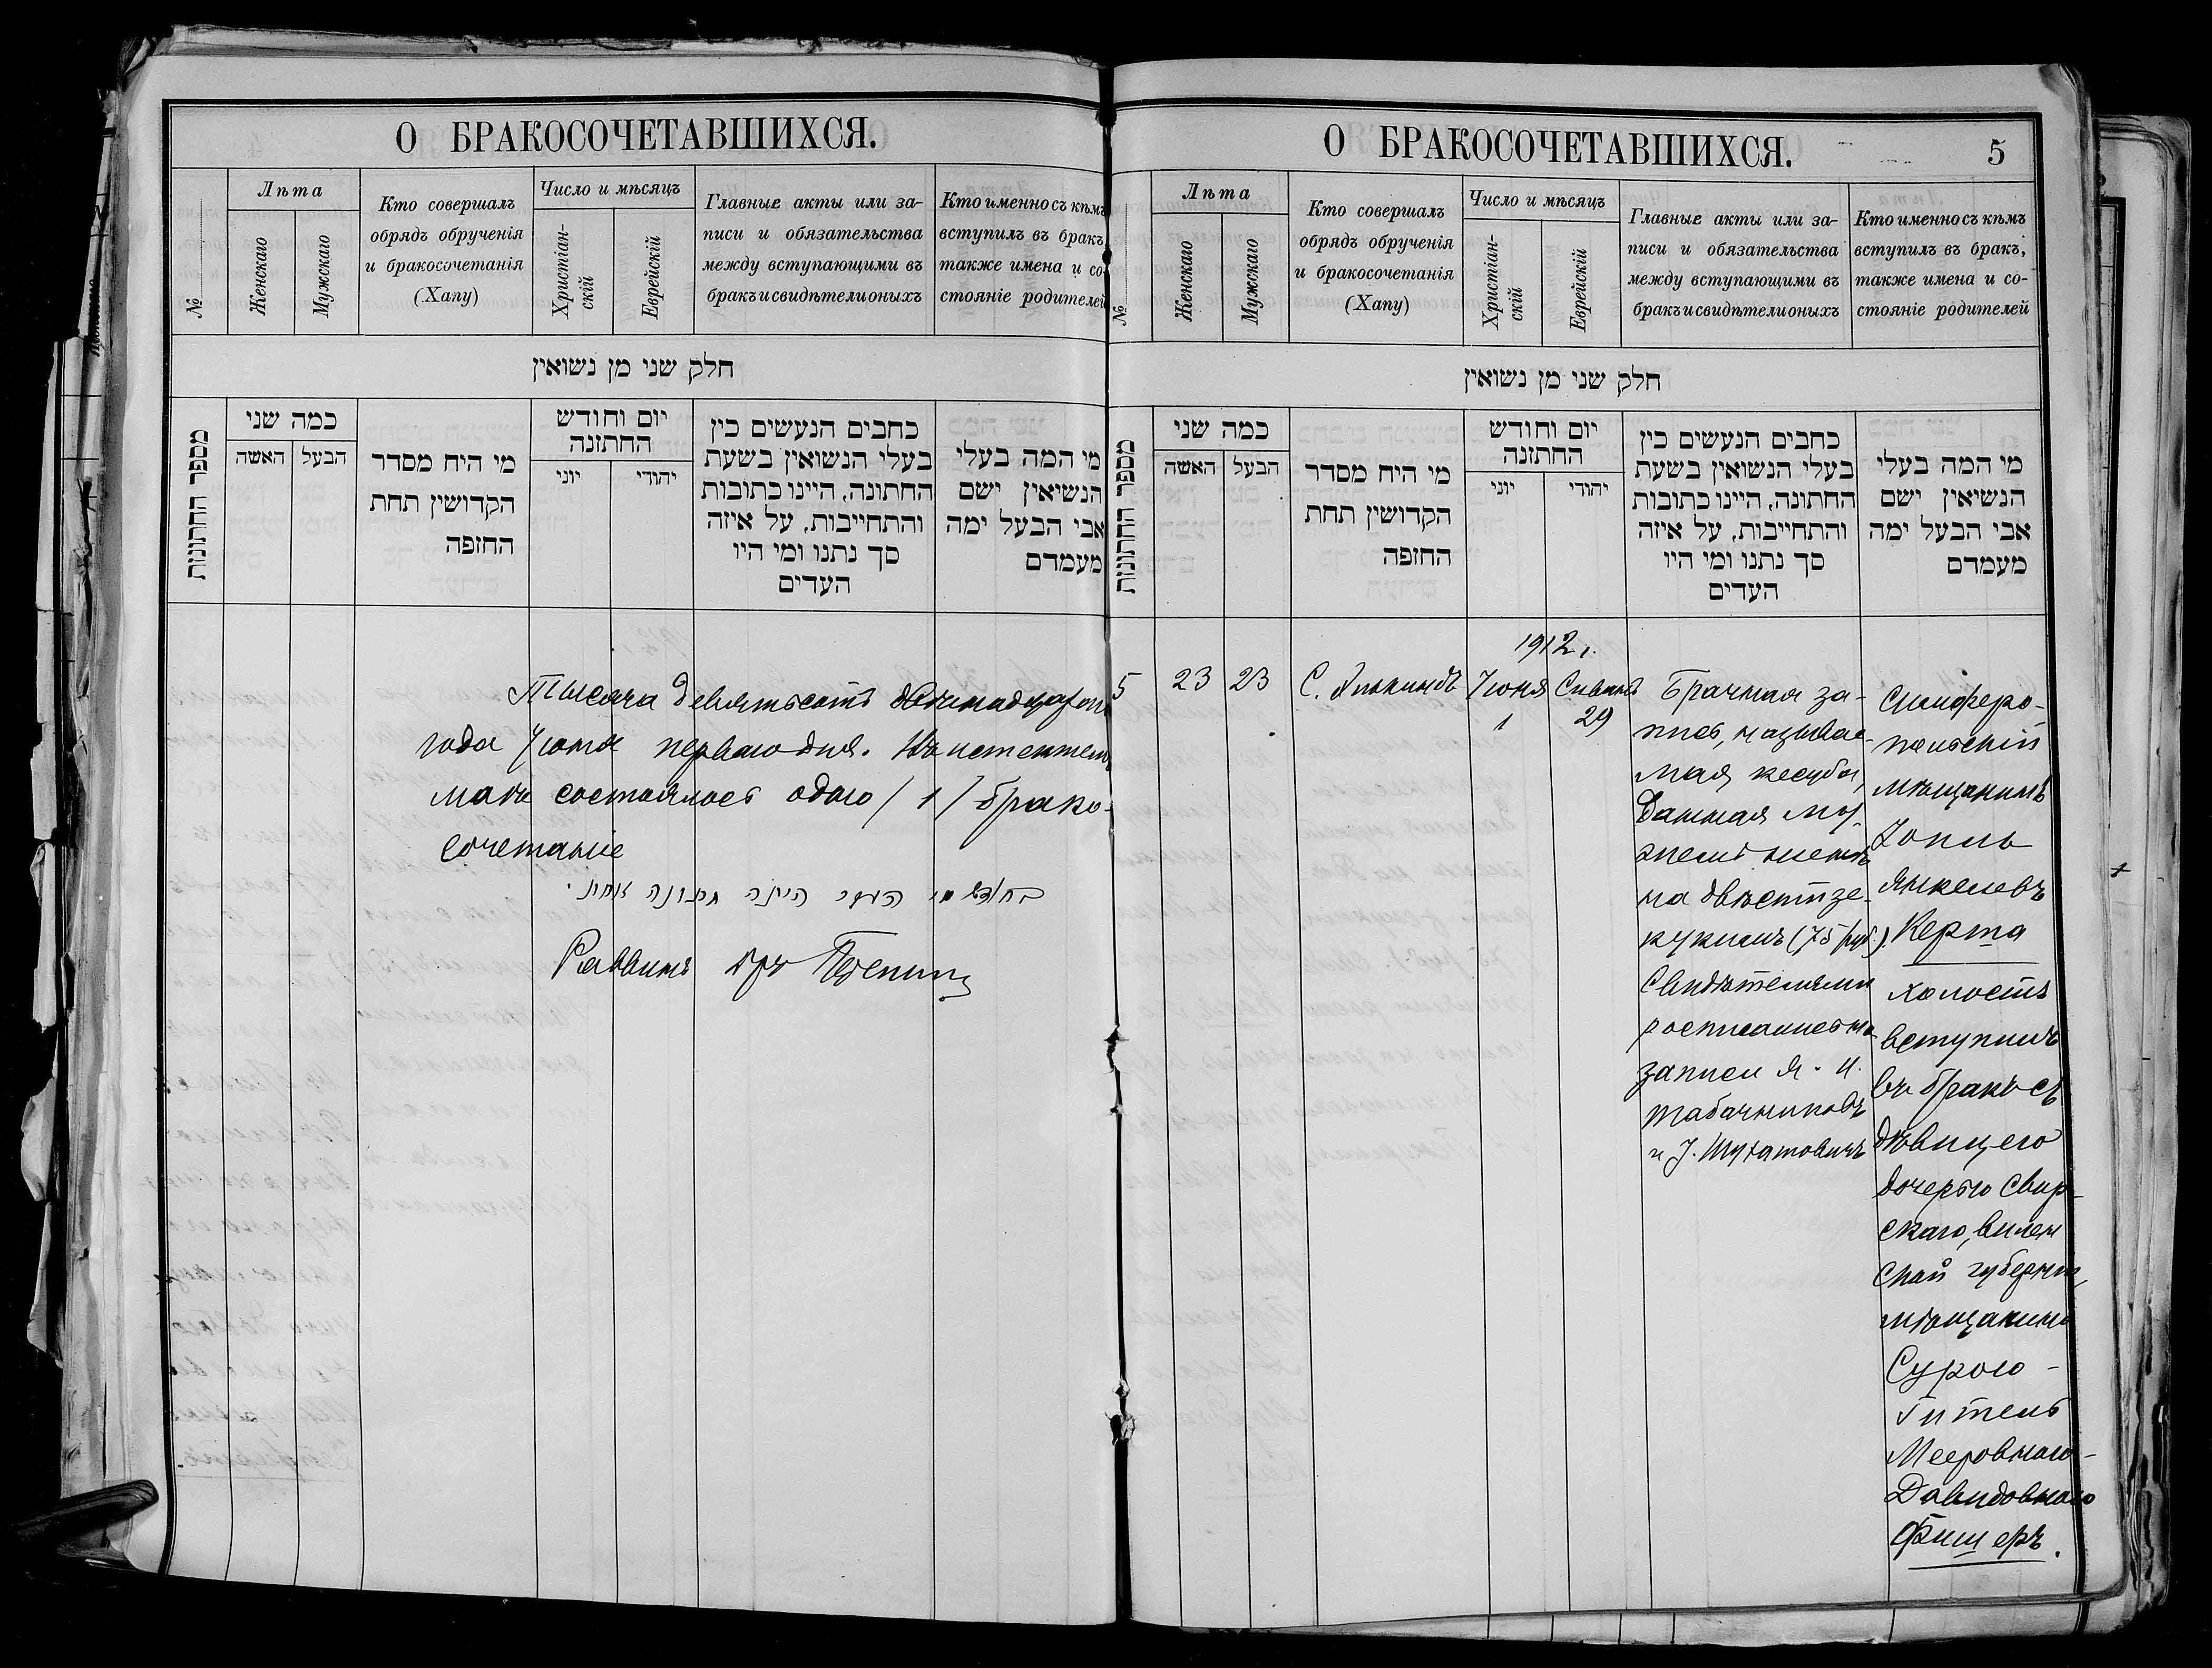 О БРАКОСОЧЕТАВШИХСЯ.
№
Лѣта
Женскаго
Мужскаго
Кто совершалъ
обрядъ обрученія
и бракосочетанія
(Хапу)
Число и мѣсяцъ
Христіан-
скій
Еврейскій
Главные акты или за-
писи и обязательства
между вступающими въ
бракъ и свидѣтели оныхъ
Кто именно съ кѣмъ
вступилъ въ бракъ,
также имена и со-
стояніе родителей
חלק שני מן נשואין
מספר החתונות
כמה שני
האשה
הבעל
מי היח מסדר
הקדושין תחת
החזפה
יום וחודש
החתזנה
יוני
יהודי
כחבים הנעשים כין
בעלי הנשואין בשעת
החתונה, היינו כתובות
והתחייבות, על איזה
סך נתנו ומי היו
העדים
מי המה בעלי
הנשיאין ישם
אבי הבעל ימה
מעמדם
Тысяча девятьсотъ двѣнадцатого
года Іюня перваго дня. Въ истекшемъ
маѣ состоялось одно /1/ брако-
сочетаніе
היתה חתונה אחת.
Раввинъ
О БРАКОСОЧЕТАВШИХСЯ.
5
№
Лѣта
Женскаго
Мужскаго
Кто совершалъ
обрядъ обрученія
и бракосочетанія
(Хапу)
Число и мѣсяцъ
Христіан-
скій
Еврейскій
Главные акты или за-
писи и обязательства
между вступающими въ
бракъ и свидѣтели оныхъ
Кто именно съ кѣмъ
вступилъ въ бракъ,
также имена и со-
стояніе родителей
חלק שני מן נשואין
מספר החתונות
כמה שני
האשה
הבעל
מי היח מסדר
הקדושין תחת
החזפה
יום וחודש
החתזנה
יוני
יהודי
כחבים הנעשים כין
בעלי הנשואין בשעת
החתונה, היינו כתובות
והתחייבות, על איזה
סך נתנו ומי היו
העדים
מי המה בעלי
הנשיאין ישם
אבי הבעל ימה
מעמדם
1912 г.
5
23
23
С. Элькиндъ
Іюня
1
Сиванъ
29
Брачная за-
пись, называе-
мая кесуба,
данная му-
жемъ женѣ
на двѣсти зе-
кукимъ (75 руб.).
Свидѣтелями
росписались на
записи Я. И.
Табачниковъ
и І. Шухатовичъ
Симферо-
польскій
мѣщанинъ
Іопль
Янкелевъ
Керта
холостъ
вступилъ
въ бракъ съ
дѣвицею
дочерью Свир-
скаго, вилен
ской губерніи,
мѣщанина
Сурою-
Гитель
Мееровною-
Давидовною
Фишеръ.